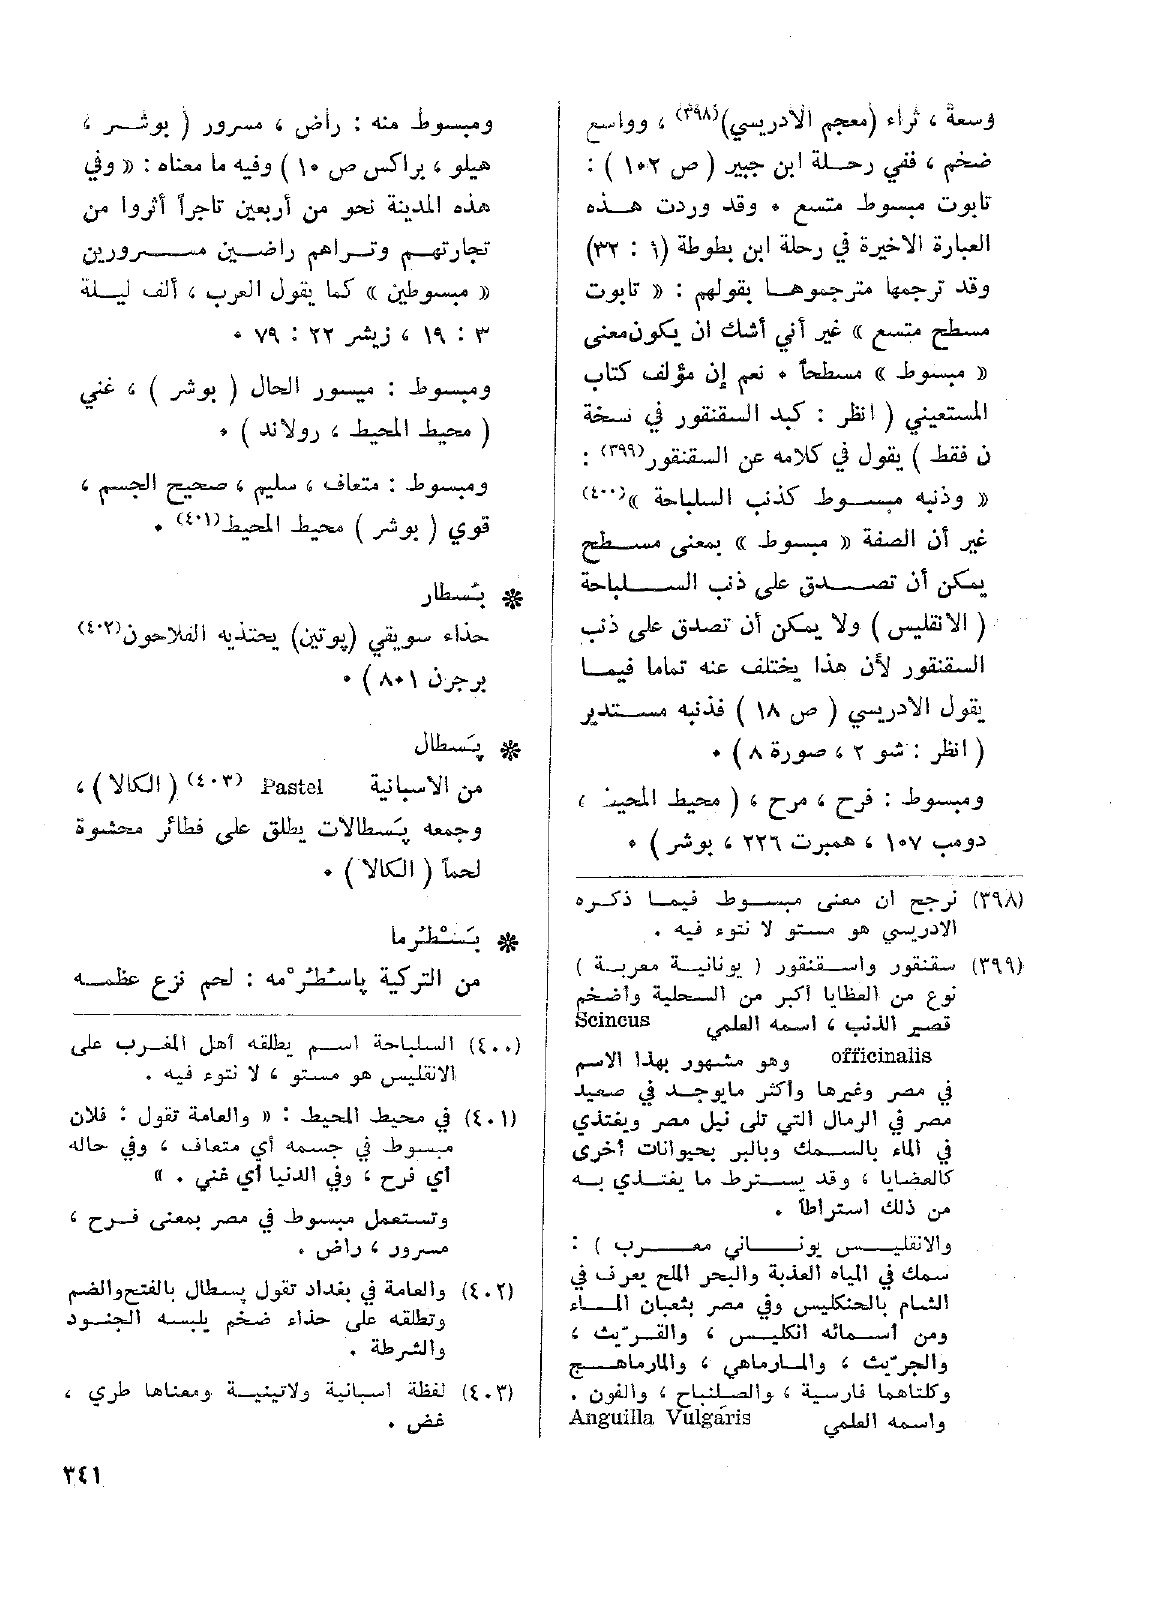 وسعة ، ثراء (معجم الأدريسي)(٣٩٨) ، وواسع
ضخم ، ففي رحلة ابن جبير ( ص ١٠٢ ) :
تابوت مبسوط متسع ٠ وقد وردت هذه
العبارة الاخيرة في رحلة ابن بطوطة (١ : ٣٢)
وقد ترجمها مترجموها بقولهم : « تابوت
مسطح متسع » غير أني أشك ان يكون معنى
« مبسوط » مسطحاً ٠ نعم إن مؤلف كتاب
المستعيني ( انظر : كبد السقنقور في نسخة
ن فقط ) يقول في كلامه عن السقنقور(٣٩٩) :
« وذنبه مبسوط كذنب السلباحة »(٤٠٠)
غير أن الصفة « مبسوط » بمعنى مسطح
يمكن أن تصدق على ذنب السلباحة
( الانقليس ) ولا يمكن أن تصدق على ذنب
السقنقور لأن هذا يختلف عنه تماما فيما
يقول الادريسي ( ص ١٨ ) فذنبه مستدير
( انظر : شو ٢ ، صورة ٨ ) ٠
ومبسوط : فرح ، مرح ، ( محيط المحيط ،
دومب ١٠٧ ، همبرت ٢٢٦ ، بوشر ) ٠
(٣٩٨) نرجح ان معنى مبسوط فيما ذكره
الادريسي هو مستو لا نتوء فيه .
(٣٩٩) سقنقور واسقنقور ( يونانية معربة )
نوع من العظايا أكبر من السحلية وأضخم
قصير الذنب ، اسمه العلمي Scincus
officinalis وهو مشهور بهذا الاسم
في مصر وغيرها وأكثر مايوجد في صعيد
مصر في الرمال التي تلى نيل مصر ويغتذي
في الماء بالسمك وبالبر بحيوانات أخرى
كالعضايا ، وقد يسترط ما يغتذي به
من ذلك استراطاً .
والانقليس يوناني معرب ) :
سمك في المياه العذبة والبحر الملح يعرف في
الشام بالحنكليس وفي مصر بثعبان الماء
ومن أسمائه انكليس ، والقرّيث ،
والجرّيث ، والمارماهي ، والمارماهج
وكلتاهما فارسية ، والصلنباح ، والفون .
واسمه العلمي Anguilla Vulgaris
ومبسوط منه : راض ، مسرور ( بوشر ،
هيلو ، براكس ص ١٠ ) وفيه ما معناه : « وفي
هذه المدينة نحو من أربعين تاجراً أثروا من
تجارتهم وتراهم راضين مسرورين
« مبسوطين » كما يقول العرب ، ألف ليلة
٣ : ١٩ ، زيشر ٢٢ : ٧٩ ٠
ومبسوط : ميسور الحال ( بوشر ) ، غني
( محيط المحيط ، رولاند ) ٠
ومبسوط : متعاف ، سليم ، صحيح الجسم ،
قوي ( بوشر ) محيط المحيط(٤٠١) ٠
❋ بُسطار
حذاء سويقي (پوتين) يحتذيه الفلاحون(٤٠٢)
برجرن ٨٠١ ) ٠
❋ پَسطال
من الاسبانية Pastel (٤٠٣) ( الكالا ) ،
وجمعه پَسطالات يطلق على فطائر محشوة
لحماً ( الكالا ) ٠
❋ بَسْطُرما
من التركية پاسْطُرْمه : لحم نزع عظمه
(٤٠٠) السلباحة اسم يطلقه أهل المغرب على
الانقليس هو مستو ، لا نتوء فيه .
(٤٠١) في محيط المحيط : « والعامة تقول : فلان
مبسوط في جسمه أي متعاف ، وفي حاله
أي فرح ، وفي الدنيا أي غني . »
وتستعمل مبسوط في مصر بمعنى فرح ،
مسرور ، راض .
(٤٠٢) والعامة في بغداد تقول پسطال بالفتح والضم
وتطلقه على حذاء ضخم يلبسه الجنود
والشرطة .
(٤٠٣) لفظة اسبانية ولاتينية ومعناها طري ،
غض .
٣٤١